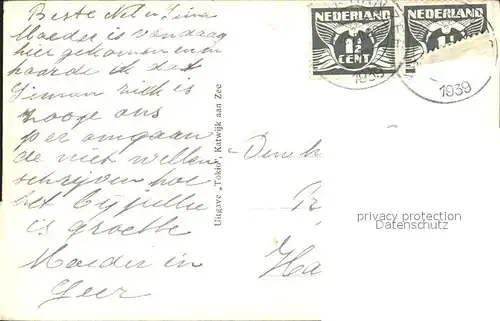 Beste Nel en Sina
Moeder is vandaag
hier gekomen en
hoorde ik dat
Simon ziek is
zooge ons
per omgaan
de niet willen
schrijven hoe
het bij jullie
is groette
Moeder en
Geer
Uitgave „Tokio", Katwijk aan Zee
NEDERLAND
1½
CENT
NEDERLAND
1939
1939
Den h
Ha
privacy protection
Datenschutz